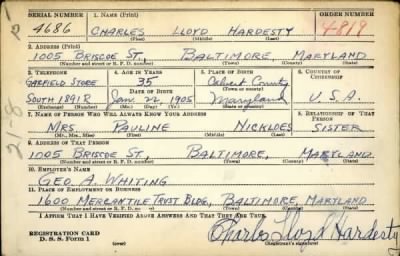 SERIAL NUMBER 1. NAME (Print) ORDER NUMBER
4686 CHARLES LLOYD HARDESTY 4819
(First) (Middle) (Last)
2. ADDRESS (Print)
1005 BRISCOE ST. BALTIMORE, MARYLAND
(Number and street or R. F. D. number) (Town) (County) (State)
3. TELEPHONE 4. AGE IN YEARS 5. PLACE OF BIRTH 6. COUNTRY OF CITIZENSHIP
GARFIELD STORE 35 Calvert County
DATE OF BIRTH (Town or county)
SOUTH 1891R Jan. 22, 1905 Maryland U.S.A.
(Exchange) (Number) (Mo.) (Day) (Yr.) (State or country)
7. NAME OF PERSON WHO WILL ALWAYS KNOW YOUR ADDRESS 8. RELATIONSHIP OF THAT PERSON
MRS PAULINE NICKLOES SISTER
(Mr., Mrs., Miss) (First) (Middle) (Last)
9. ADDRESS OF THAT PERSON
1005 BRISCOE ST. BALTIMORE, MARYLAND
(Number and street or R. F. D. number) (Town) (County) (State)
10. EMPLOYER'S NAME
GEO A. WHITING
11. PLACE OF EMPLOYMENT OR BUSINESS
1600 MERCANTILE TRUST BLDG, BALTIMORE, MARYLAND
(Number and street or R. F. D. number) (Town) (County) (State)
I AFFIRM THAT I HAVE VERIFIED ABOVE ANSWERS AND THAT THEY ARE TRUE.
REGISTRATION CARD
D. S. S. Form 1
Charles Lloyd Hardesty
(Registrant's signature)